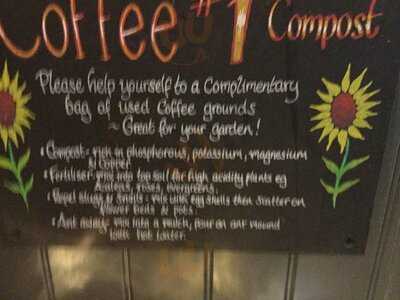 Coffee #1 Compost
Please help yourself to a Complimentary
bag of used Coffee grounds
~ Great for your garden!
: Compost: rich in phosphorous, potassium, magnesium
& Copper
: Fertiliser: mix into top soil for high acidity plants eg
Azaleas, roses, evergreens.
: Repel slugs & Snails: mix with egg shells then scatter on
flower beds & pots.
: Ant away: mix into a mulch, pour on ant mound
with hot water.